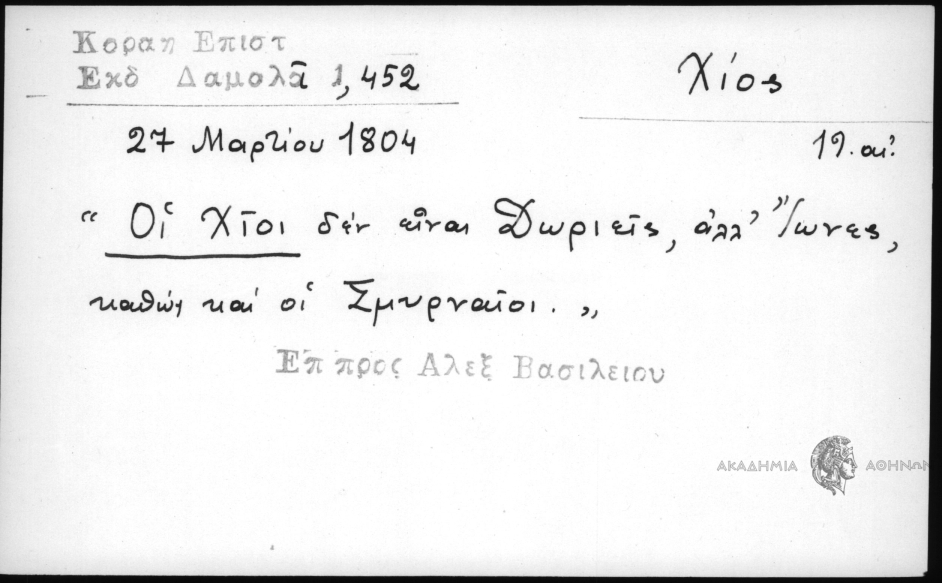 Κοραη Επιστ
Εκδ Δαμολᾶ 1,452
Χίος
27 Μαρτίου 1804
19. αι.
“ Οἱ Χῖοι δέν εἶναι Δωριεῖς, ἀλλ’ Ἴωνες,
καθώς καί οἱ Σμυρναῖοι. „
Επ προς Αλεξ Βασιλειου
ΑΚΑΔΗΜΙΑ ΑΘΗΝΩΝ